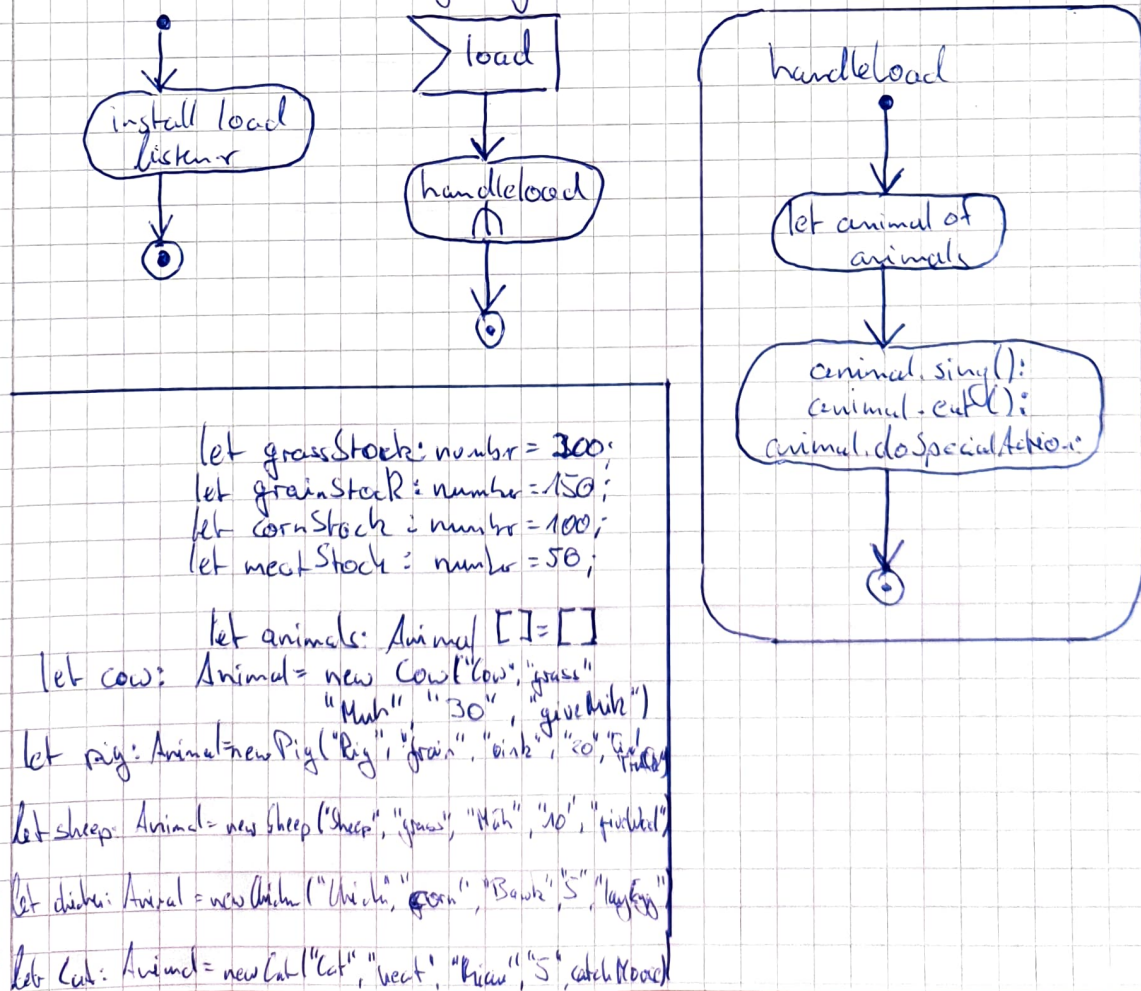 install load
listener
load
handleload
handleLoad
let animal of
animals
animal.sing();
animal.eat();
animal.doSpecialAction;
let grassStock: number = 300;
let grainStock: number = 150;
let cornStock: number = 100;
let meatStock: number = 50;
let animals: Animal []=[]
let cow: Animal = new Cow("Cow", "grass"
"Muh", "30", "giveMilk")
let pig: Animal = new Pig("Pig", "grain", "oink", "20",
let sheep: Animal = new Sheep("Sheep", "grass", "Mäh", "10",
let chicken: Animal = new Chicken("Chicken", "corn", "Bawk", "5", "layEgg"
let Cat: Animal = new Cat("Cat", "meat", "5", catchMouse)